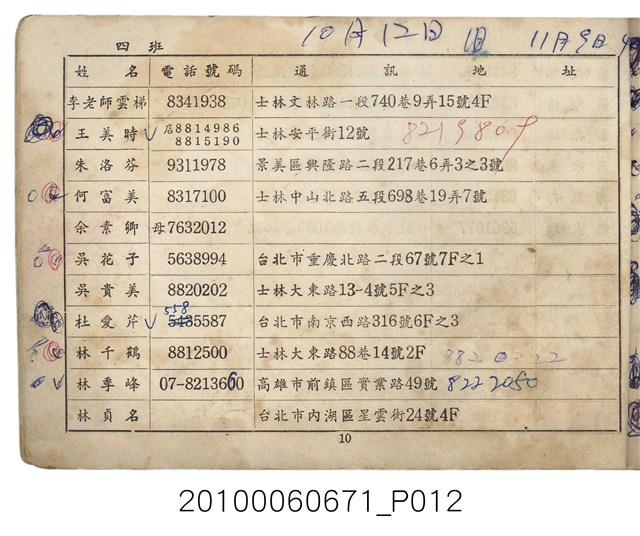 10月12日
11月9日
四班
姓名 電話號碼 通訊地址
李老師雲梯 8341938 士林文林路一段740巷9弄15號4F
王美時 店8814986 8815190 士林安平街12號 8219809
朱洛芬 9311978 景美區興隆路二段217巷6弄3之3號
何富美 8317100 士林中山北路五段698巷19弄7號
余素卿 母7632012
吳花子 5638994 台北市重慶北路二段67號7F之1
吳貴美 8820202 士林大東路13-4號5F之3
558
杜愛芹 5435587 台北市南京西路316號6F之3
林千鶴 8812500 士林大東路88巷14號2F 8820322
林季峰 07-8213660 高雄市前鎮區實業路49號 8222050
林貞名 台北市內湖區星雲街24號4F
10
20100060671_P012